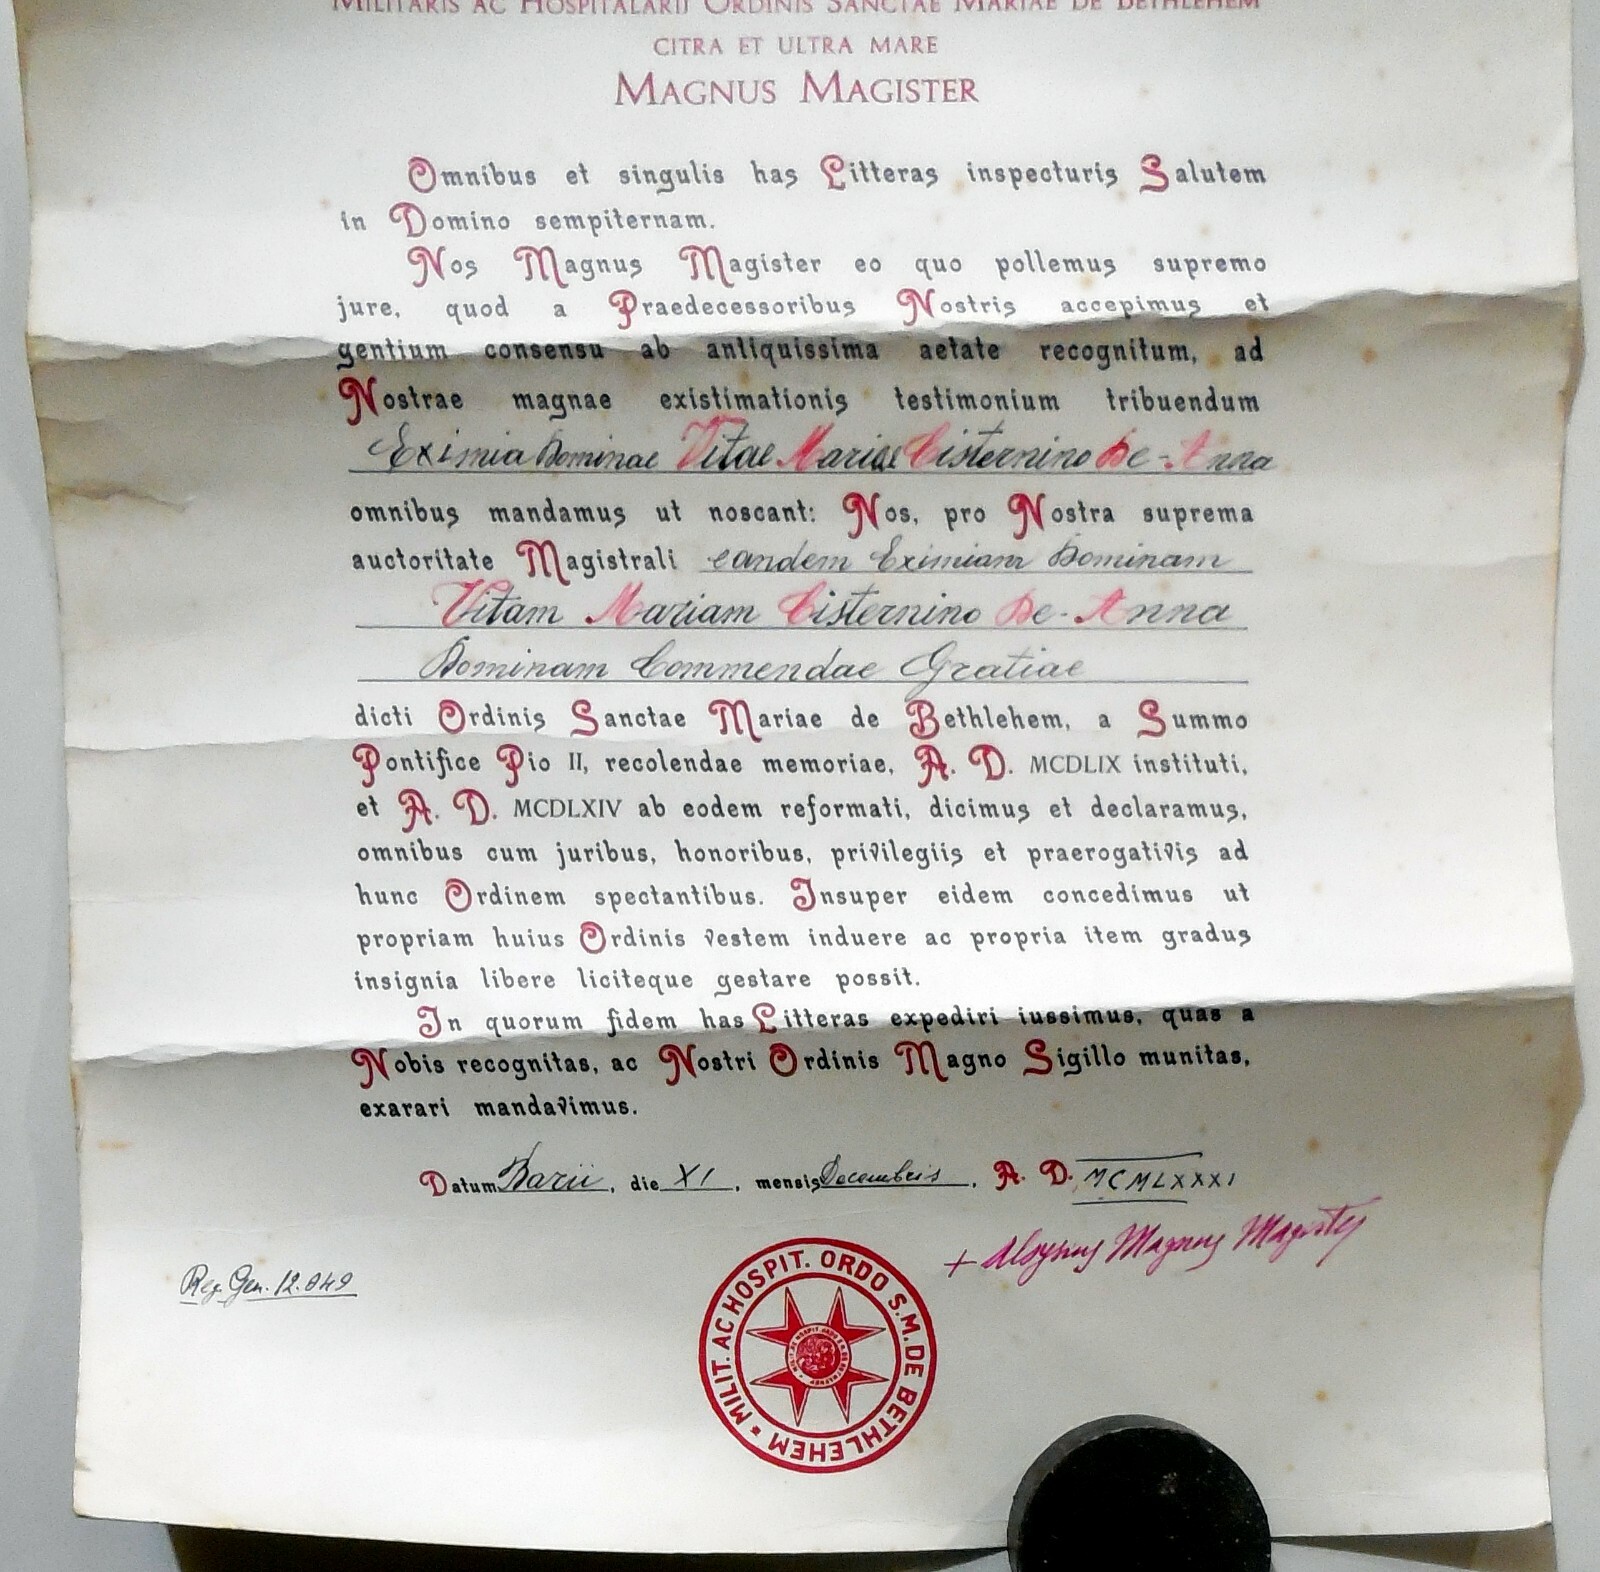 MILITARIS AC HOSPITALARII ORDINIS SANCTAE MARIAE DE BETHLEHEM
CITRA ET ULTRA MARE
MAGNUS MAGISTER
Omnibus et singulis has Litteras inspecturis Salutem
in Domino sempiternam.
Nos Magnus Magister eo quo pollemus supremo
jure, quod a Praedecessoribus Nostris accepimus et
gentium consensu ab antiquissima aetate recognitum, ad
Nostrae magnae existimationis testimonium tribuendum
Eximia Dominae Vitae Mariae Cisternino De-Anna
omnibus mandamus ut noscant: Nos, pro Nostra suprema
auctoritate Magistrali eandem Eximiam Dominam
Vitam Mariam Cisternino De-Anna
Dominam Commendae Gratiae
dicti Ordinis Sanctae Mariae de Bethlehem, a Summo
Pontifice Pio II, recolendae memoriae, A. D. MCDLIX instituti,
et A. D. MCDLXIV ab eodem reformati, dicimus et declaramus,
omnibus cum juribus, honoribus, privilegiis et praerogativis ad
hunc Ordinem spectantibus. Insuper eidem concedimus ut
propriam huius Ordinis vestem induere ac propria item gradus
insignia libere liciteque gestare possit.
In quorum fidem has Litteras expediri iussimus, quas a
Nobis recognitas, ac Nostri Ordinis Magno Sigillo munitas,
exarari mandavimus.
Datum Barii, die XI, mensis Decembris, A. D. MCMLXXXI
+ Aloysius Magnus Magister
Reg. Gen. 12.049
* MILIT. AC HOSPIT. ORDO S.M. DE BETHLEHEM